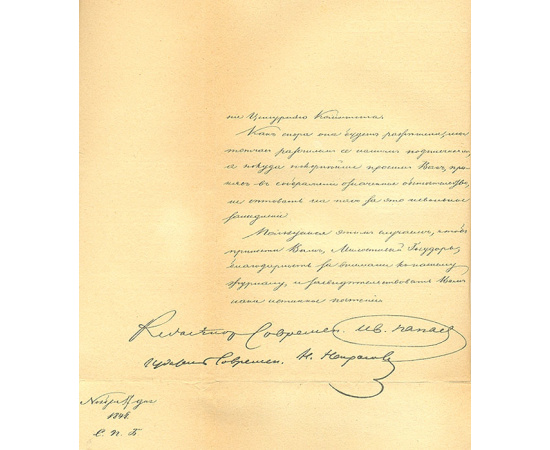 на Цензурнаго Комитета.
Какъ скоро она будетъ разрѣшена, мы
тотчасъ разошлемъ ее нашимъ подписчикамъ,
а покуда покорнѣйше просимъ Васъ, при-
нявъ въ соображеніе означенныя обстоятельства,
не сѣтовать на насъ за это невольное
замедленіе.
Пользуемся этимъ случаемъ, чтобъ
принести Вамъ, Милостивый Государь,
благодарность за вниманіе къ нашему
журналу, и засвидѣтельствовать Вамъ
наше истинное почтеніе
Редакторъ Современ. Ив. Панаев
Современ. Н. Некрасов
Ноября дня
1848.
С. П. Б.